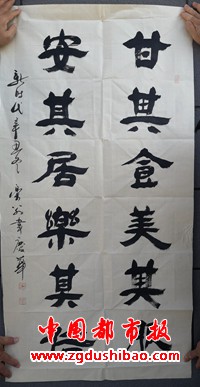 甘其食美其服
安其居樂其
新时代辛丑冬
中国都市报
www.zgdushibao.com